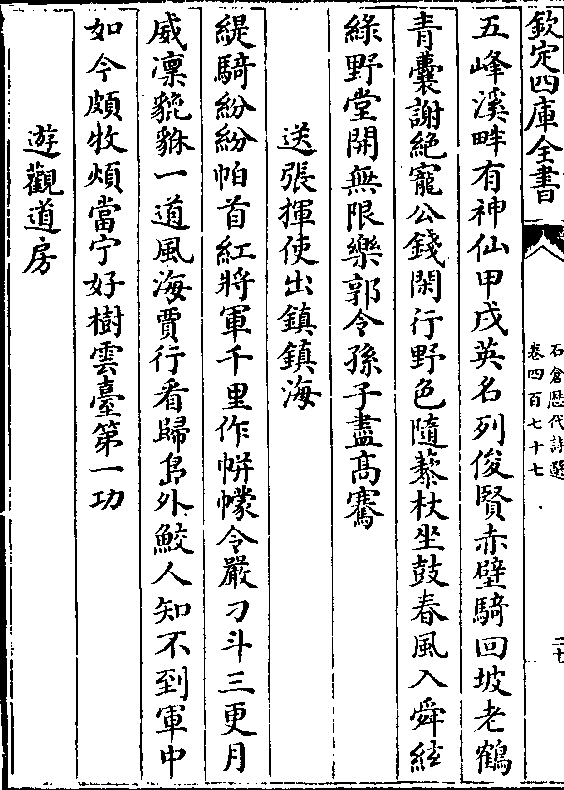 欽定四庫全書
石倉歷代詩選
卷四百七十七
二七
五峰溪畔有神仙甲戌英名列俊賢赤壁騎回坡老鶴
青囊謝絶寵公錢閑行野色隨藜杖坐鼓春風入舜絃
綠野堂開無限樂郭令孫子盡髙騫
送張揮使出鎮鎮海
緹騎紛紛帕首紅將軍千里作帡幪令嚴刁斗三更月
威凛貔貅一道風海賈行看歸島外鮫人知不到軍中
如今頗牧煩當宁好樹雲臺第一功
遊觀道房